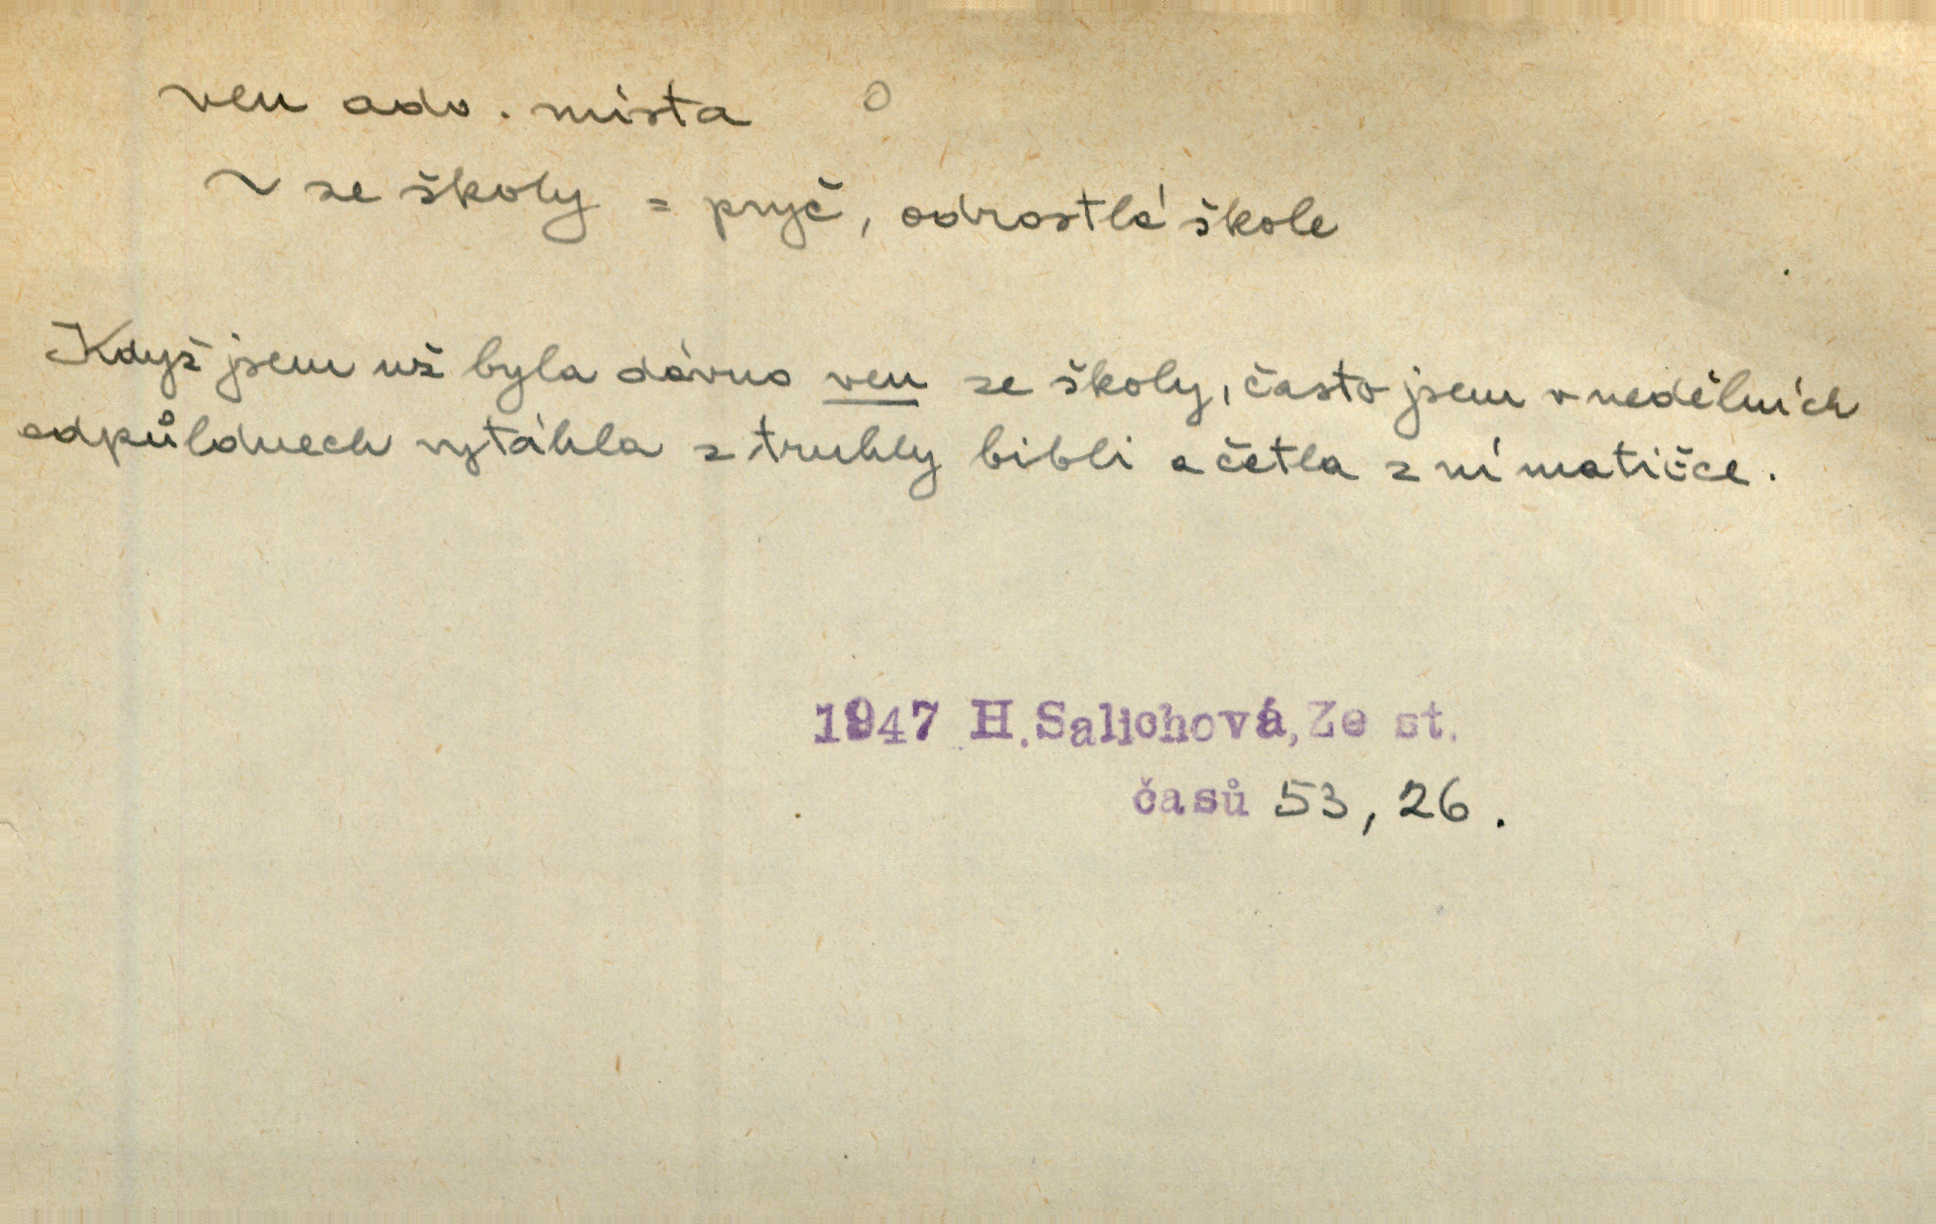 ven adv. místa o
~ ze školy = pryč, odrostlá škole
Když jsem už byla dávno ven ze školy, často jsem v nedělních
odpůldnech vytáhla z truhly bibli a četla z ní matičce.
1947 H.Salichová, Ze st.
časů 53, 26.